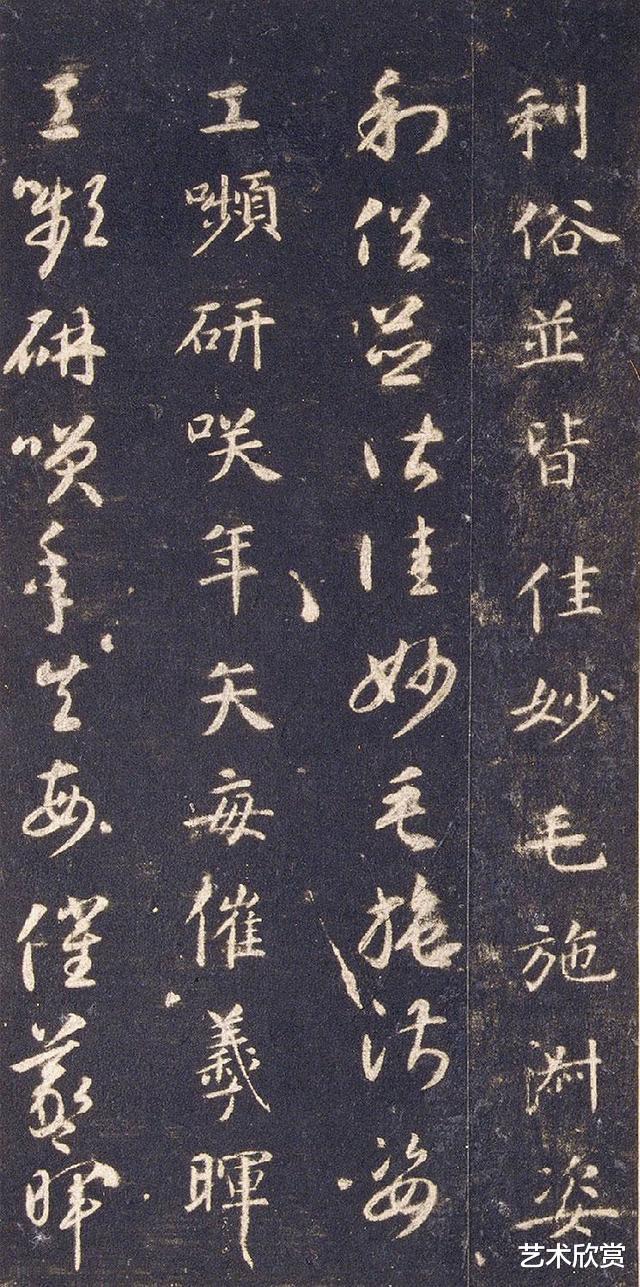 利俗並皆佳妙毛施淑姿
利俗並皆佳妙毛施淑姿
工嚬研咲年矢每催羲暉
工嚬研咲年矢每催羲暉
艺术欣赏